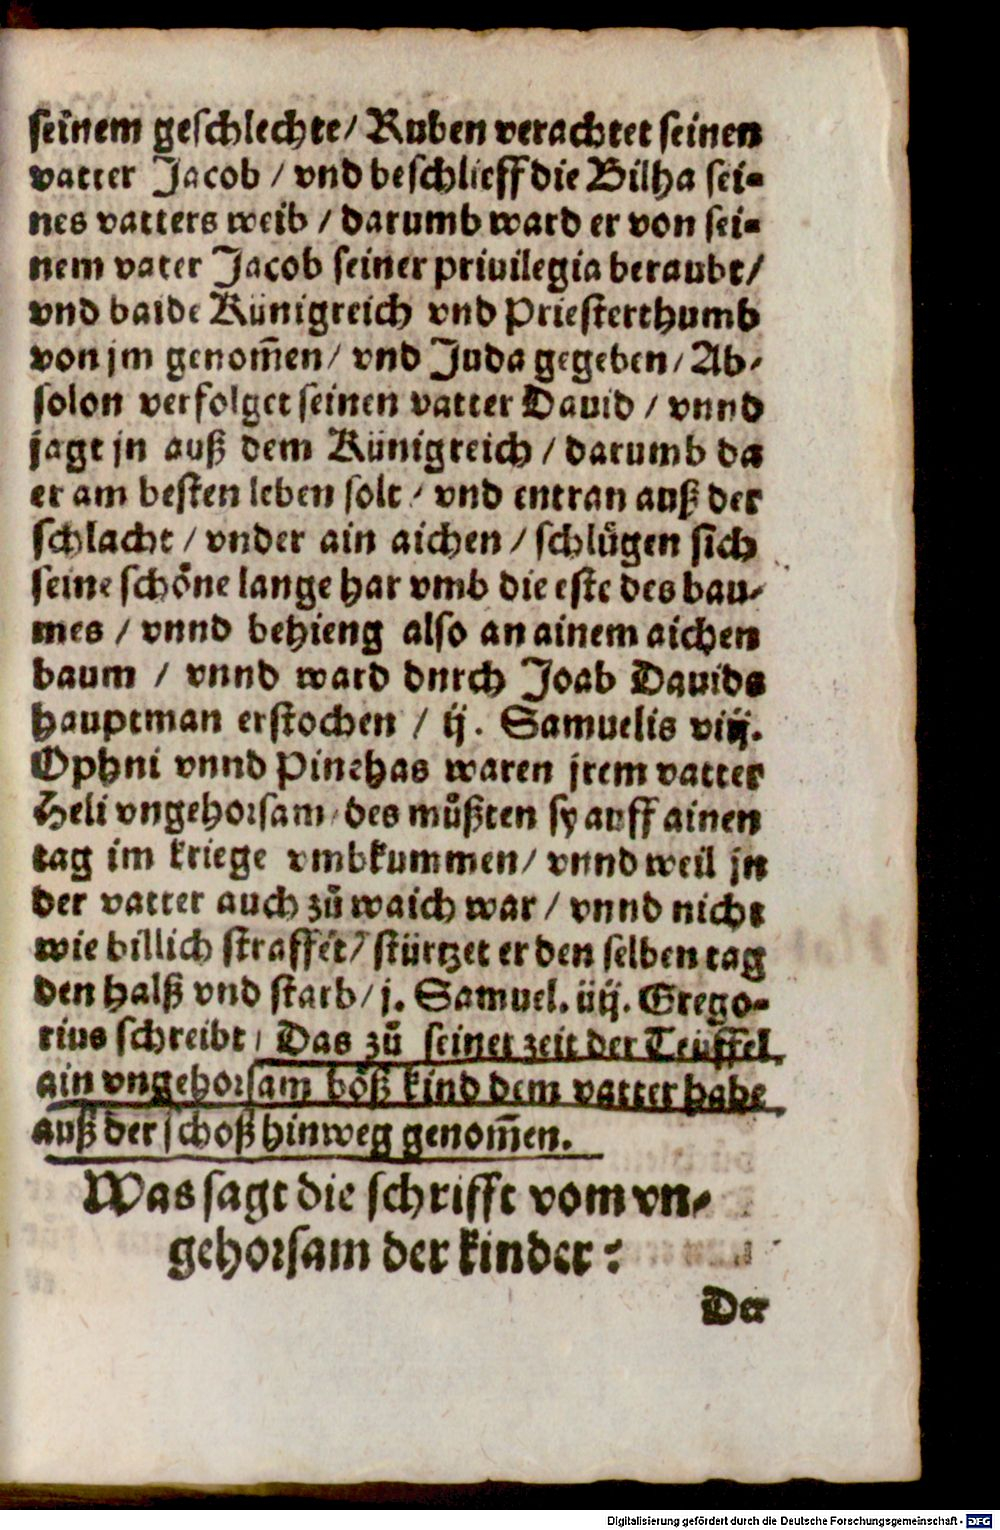 seinem geschlechte/ Ruben verachtet seinen
vatter Jacob / vnd beschlieff die Bilha sei-
nes vatters weib / darumb ward er von sei-
nem vater Jacob seiner priuilegia beraubt/
vnd baide Künigreich vnd Priesterthumb
von jm genom̃en/ vnd Juda gegeben/ Ab-
solon verfolget seinen vatter Dauid / vnnd
jagt jn auß dem Künigreich / darumb da
er am besten leben solt / vnd entran auß der
schlacht / vnder ain aichen / schlůgen sich
seine schöne lange har vmb die este des bau-
mes / vnnd behieng also an ainem aichen
baum / vnnd ward durch Joab Dauids
hauptman erstochen / ij. Samuelis viij.
Ophni vnnd Pinehas waren jrem vatter
Heli vngehorsam/ des můßten sy auff ainen
tag im kriege vmbkummen/ vnnd weil jn
der vatter auch zů waich war / vnnd nicht
wie billich straffet/ stürtzet er den selben tag
den halß vnd starb/ j. Samuel. iiij. Grego-
rius schreibt / Das zů seiner zeit der Teüffel
ain vngehorsam böß kind dem vatter habe
auß der schoß hinweg genom̃en.
Was sagt die schrifft vom vn-
gehorsam der kinder ?
Der
Digitalisierung gefördert durch die Deutsche Forschungsgemeinschaft - DFG